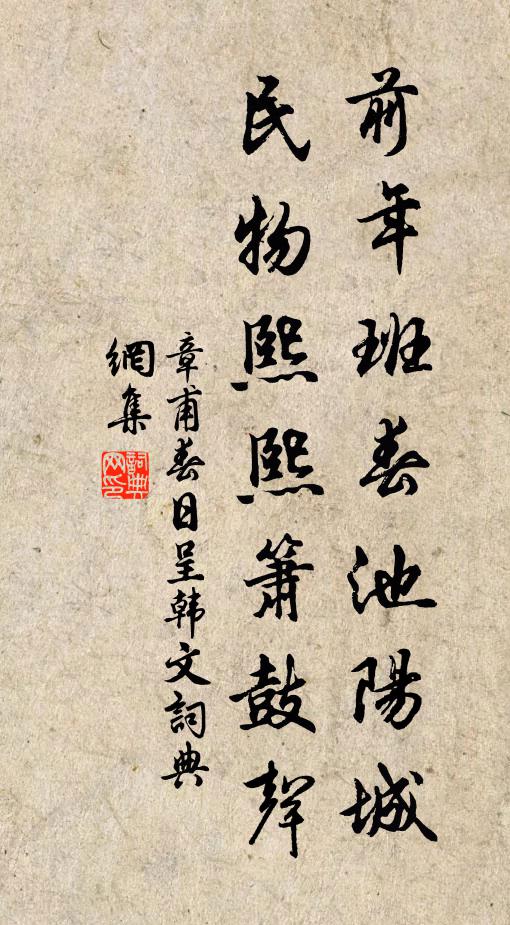 前年班春池陽城
民物熙熙簫鼓聲
章甫春日呈韩文詞典
網集
詞典网印